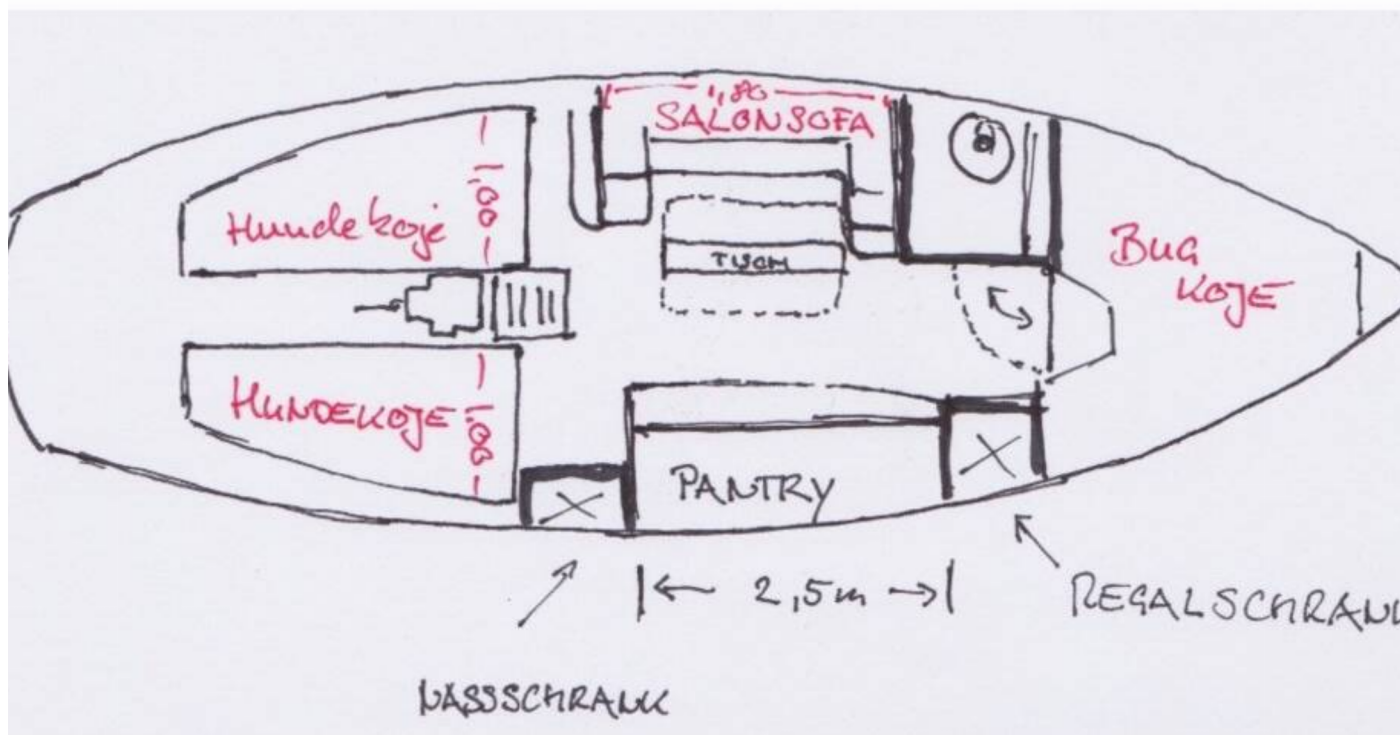 1,80
SALONSOFA
Hundekoje
1,00
TISCH
BUG
KOJE
HUNDEKOJE
1,00
PANTRY
2,5m
REGALSCHRANK
NASSSCHRANK